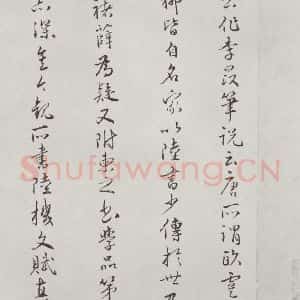 作李筆說云唐所謂歐虞
柳皆自名家以陸書少傳於世
褚薛為疑又附柬之書學品第
深至今觀所書陸機文賦真
Shufawang.CN